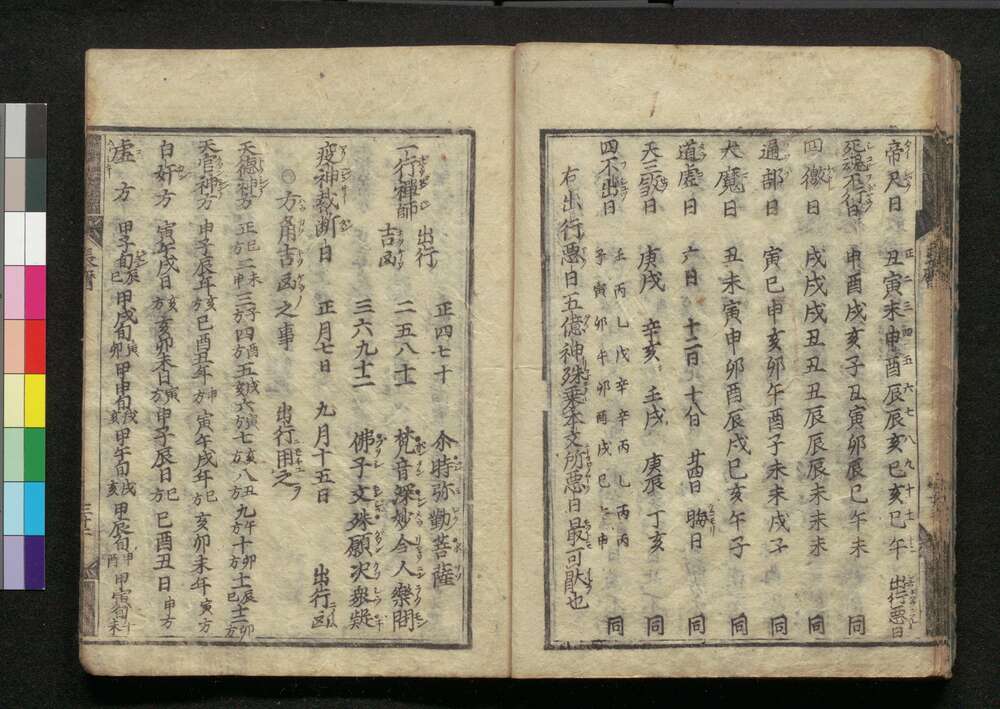 帝尺日 正二三四五六七八九十十一十二 丑寅未申酉辰辰亥巳亥巳午 出行悪日
日 申酉戌亥子丑寅卯辰巳午未 同
四激日 戌戌戌丑丑丑辰辰辰未未未 同
通部日 寅巳申亥卯午酉子未未戌子 同
大魔日 丑未寅申卯酉辰戌巳亥午子 同
道虚日 六日 十二日 十八日 廿四日 晦日 同
庚戌 辛亥 壬戌 庚辰 丁亥 同
四不出日 壬子 丙寅 乙卯 戊午 辛卯 辛酉 丙戌 乙巳 丙 丙申 同
右出行悪日五億神殊乗本文所悪日最可猒也
一行禅師 出行吉凶 正四七十 尒時弥勒菩薩
二五八十一 梵音深妙令人楽聞
三六九十二 佛子文殊願决衆疑
疫神裁断日 正月七日 九月十五日 出行凶
○方角吉凶之事 出行用之
天徳神方 正巳方二申未三子方四酉方五亥戌六方寅七方亥八方丑九方午十方卯十一巳辰十二方卯
天官神方 申子辰年亥方 巳酉丑年申方 寅午戌年巳方 亥卯未年寅方
白奸方 寅午戌日亥方 亥卯未日寅方 申子辰日巳方 巳酉丑日申方
虚方 甲子旬辰巳 甲戌旬寅卯 甲申旬 甲午旬戌亥 甲辰旬申酉 甲寅旬午未